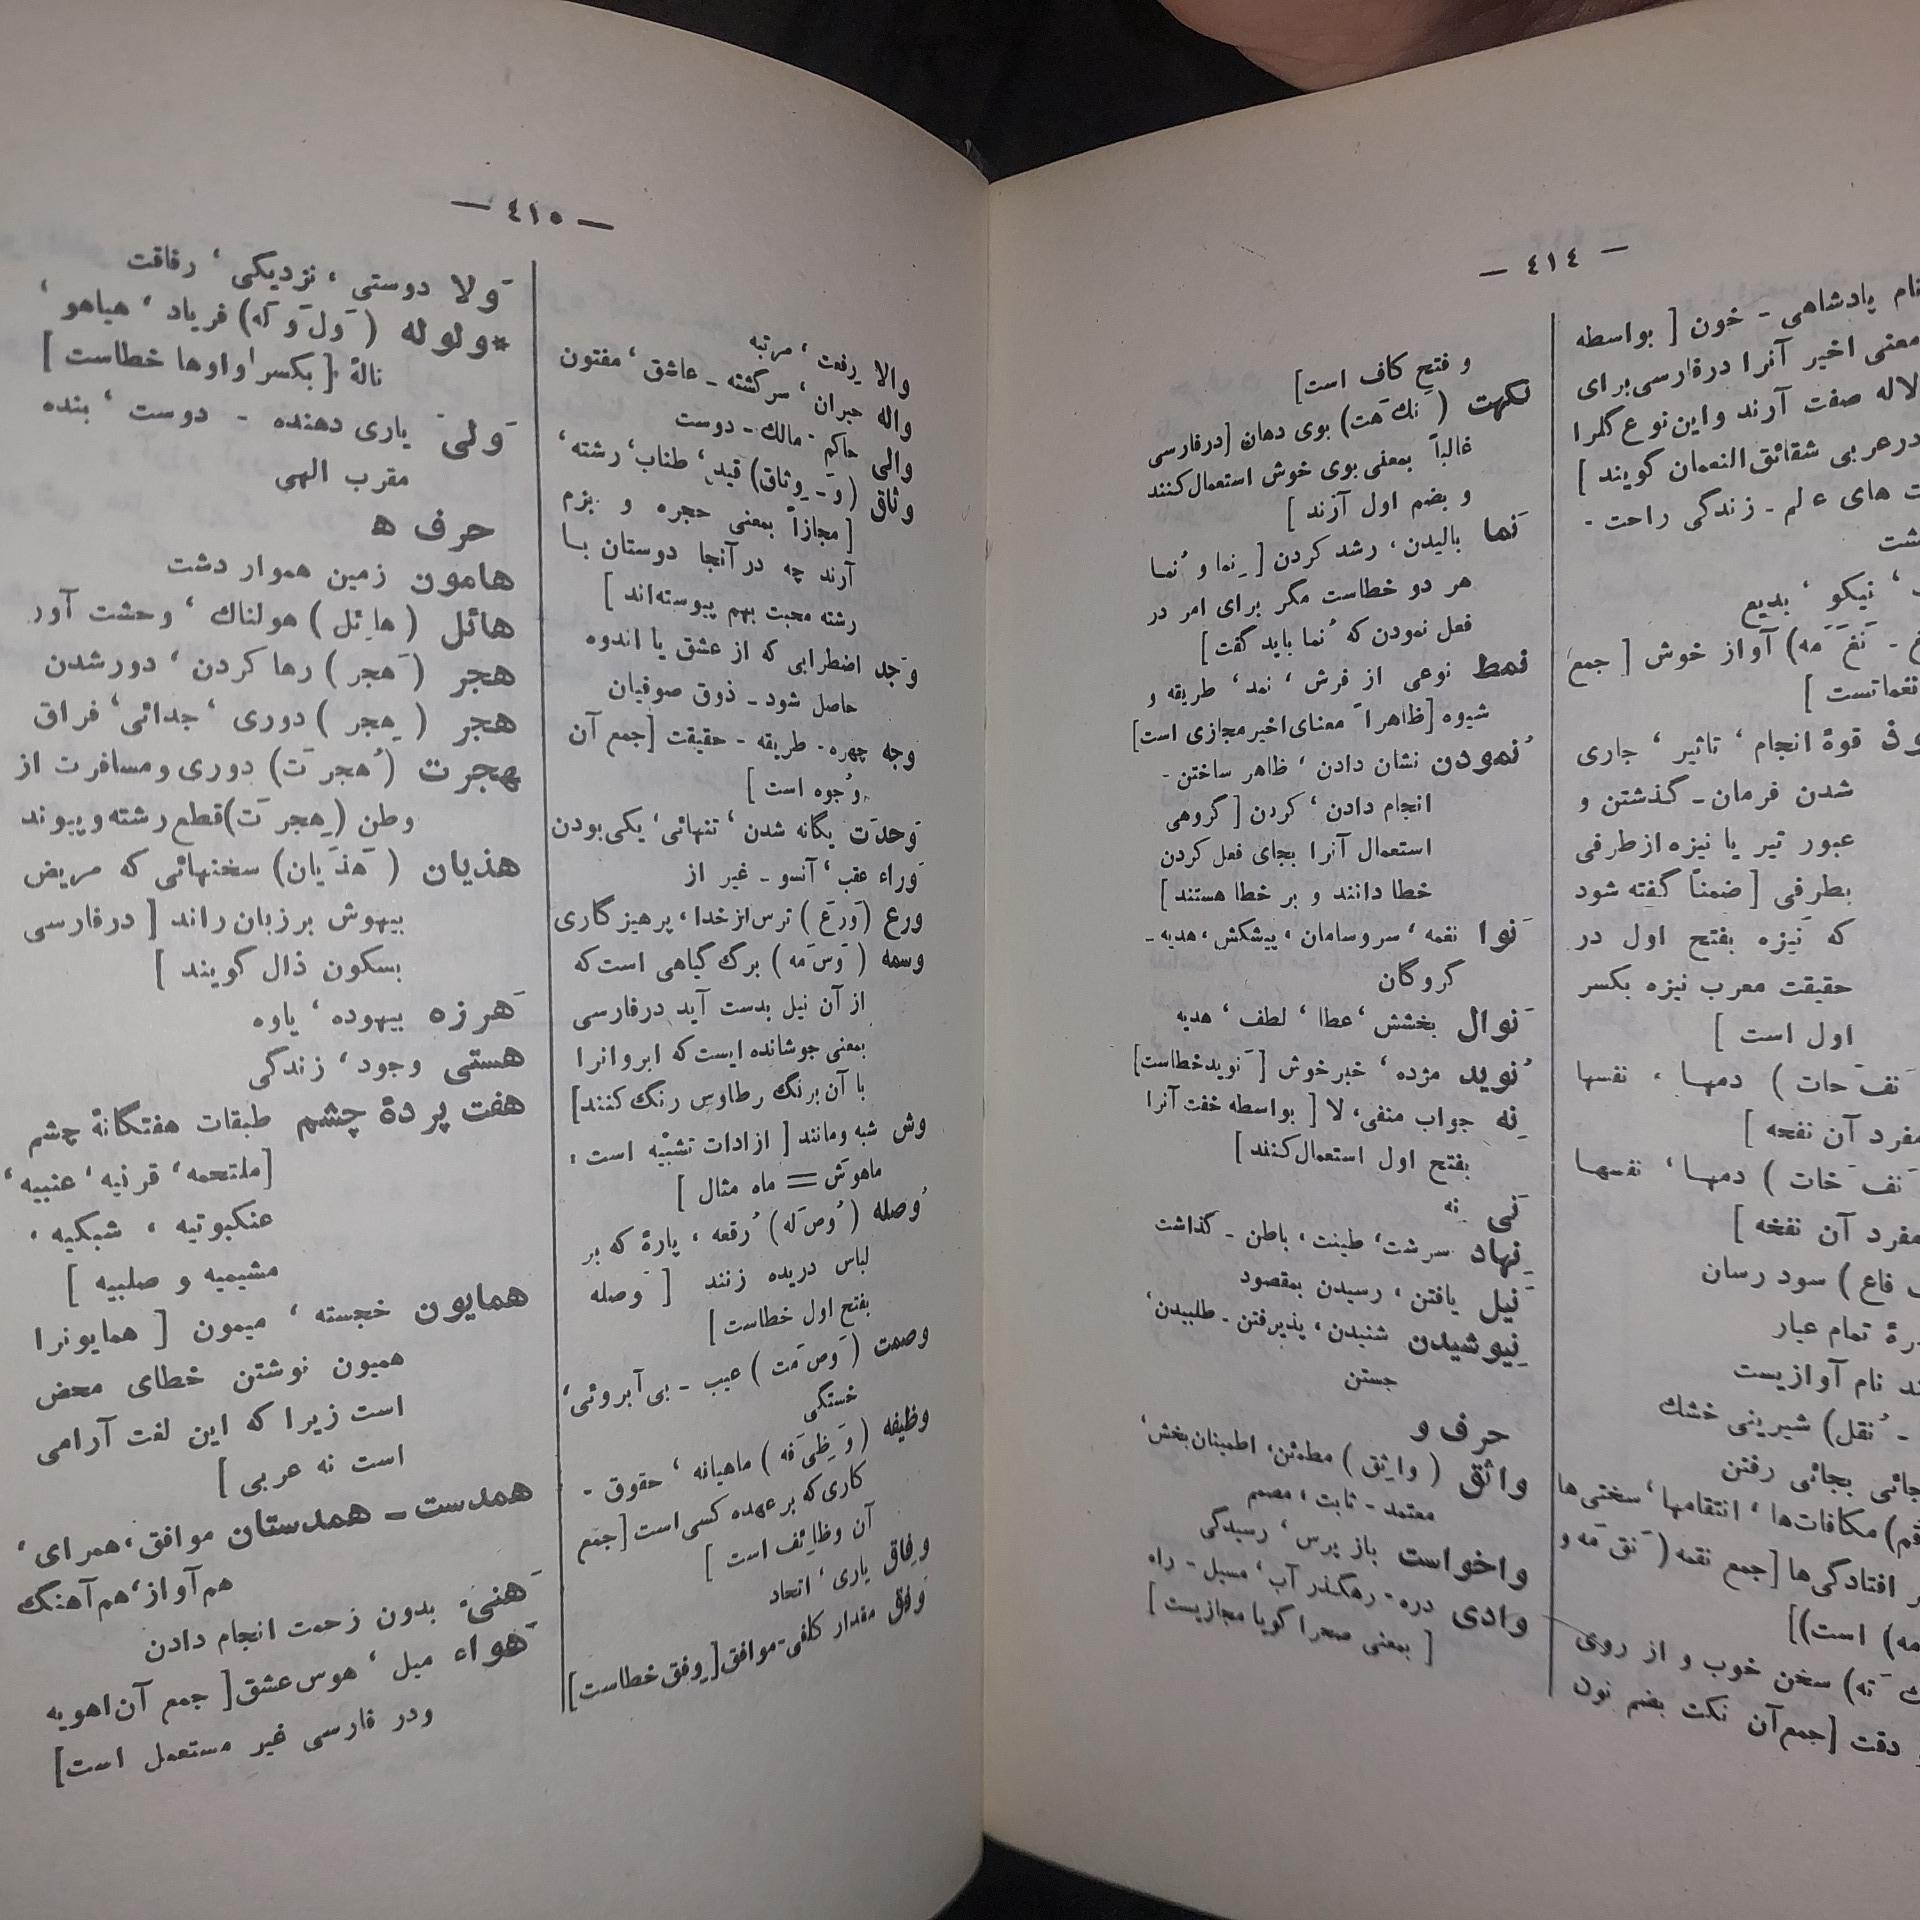 — ٤١٤ —
نام پادشاهی - خون [ بواسطه
معنی اخیر آنرا درفارسی برای
لاله صفت آرند واین نوع گلرا
درعربی شقائق‌النعمان گویند ]
های عالم - زندگی راحت -
نیکو ، بدیع
نَغ َمه) آواز خوش [ جمع
نغماتست ]
قوهٔ انجام ، تاثیر ، جاری
شدن فرمان - گذشتن و
عبور تیر یا نیزه ازطرفی
بطرفی [ ضمناً گفته شود
که نَیزه بفتح اول در
حقیقت معرب نیزه بکسر
اول است ]
نَف َحات ) دمها ، نفسها
مفرد آن نفحه ]
نَف َخات ) دمها ، نفسها
مفرد آن نفخه ]
فاع ) سود رسان
تمام عیار
نام آوازیست
- نُقل) شیرینی خشك
بجائی رفتن
مکافات‌ها ، انتقامها ، سختی‌ها
افتادگی‌ها [جمع نقمه ( نَق َمه و
است)]
َته) سخن خوب و از روی
دقت [جمع آن نکت بضم نون
و فتح کاف است]
نکهت ( نَك َهت) بوی دهان [درفارسی
غالباً بمعنی بوی خوش استعمال کنند
و بضم اول آرند ]
نَما بالیدن ، رشد کردن [ نِما و نُما
هر دو خطاست مگر برای امر در
فعل نمودن که نُما باید گفت]
نمط نوعی از فرش ، نمد ، طریقه و
شیوه [ظاهراً معنای اخیر مجازی است]
نُمودن نشان دادن ، ظاهر ساختن -
انجام دادن ، کردن [ گروهی
استعمال آنرا بجای فعل کردن
خطا دانند و بر خطا هستند ]
نَوا نغمه ، سروسامان ، پیشکش ، هدیه -
گروگان
نَوال بخشش ، عطا ، لطف ، هدیه
نُوید مژده ، خبرخوش [ نَویدخطاست]
نِه جواب منفی ، لا [ بواسطه خفت آنرا
بفتح اول استعمال کنند ]
نَی نه
نِهاد سرشت ، طینت ، باطن - گذاشت
نَیل یافتن ، رسیدن بمقصود
نِیوشیدن شنیدن ، پذیرفتن - طلبیدن ،
جستن
حرف و
واثق ( واثِق ) مطمئن ، اطمینان‌بخش ،
معتمد - ثابت ، مصمم
واخواست باز پرس ، رسیدگی
وادی دره - رهگذر آب ، مسیل - راه
[ بمعنی صحرا گویا مجازیست ]
— ٤١٥ —
والا رفعت ، مرتبه
واله حیران ، سرگشته - عاشق ، مفتون
والی حاکم - مالك - دوست
وثاق (وَ - وِثاق) قید ، طناب ، رشته ،
[ مجازاً بمعنی حجره و بزم
آرند چه درآنجا دوستان با
رشته محبت بهم پیوسته‌اند ]
وَجد اضطرابی که از عشق یا اندوه
حاصل شود - ذوق صوفیان
وجه چهره - طریقه - حقیقت [جمع آن
وُجوه است ]
وَحدَت یگانه شدن ، تنهائی ، یکی بودن
وَراء عقب ، آنسو - غیر از
ورع (وَرَع ) ترس ازخدا ، پرهیزگاری
وسمه ( وَس َمه ) برگ گیاهی است که
از آن نیل بدست آید درفارسی
بمعنی جوشانده ایست که ابروانرا
با آن برنگ رطاوس رنگ کنند]
وش شبه ومانند [ ازادات تشبیه است ،
ماهوَش = ماه مثال ]
وُصله ( وُص َله) رُقعه ، پارهٔ که بر
لباس دریده زنند [ وَصله
بفتح اول خطاست ]
وصمت ( وَص َمت ) عیب - بی‌آبروئی ،
خستگی
وظیفه ( وَظی َفه ) ماهیانه ، حقوق -
کاری که برعهده کسی است [جمع
آن وظائِف است ]
وِفاق یاری ، اتحاد
وَفق مقدار کافی-موافق[وِفق خطاست]
وَلا دوستی ، نزدیکی ، رفاقت
*ولوله ( وَل وَ له) فریاد ، هیاهو ،
نالهٔ [بکسر واوها خطاست ]
وَلی یاری دهنده - دوست ، بنده
مقرب الهی
حرف ه
هامون زمین هموار دشت
هائل ( هائِل ) هولناك ، وحشت آور
هجر ( هَجر ) رها کردن ، دورشدن
هجر ( هِجر ) دوری ، جدائی ، فراق
هجرت ( هُجر َت) دوری ومسافرت از
وطن ( هِجر َت)قطع رشته و پیوند
هذیان ( هَذَیان) سخنهائی که مریض
بیهوش برزبان راند [ درفارسی
بسکون ذال گویند ]
هَرزه بیهوده ، یاوه
هستی وجود ، زندگی
هفت پردهٔ چشم طبقات هفتگانهٔ چشم
[ملتحمه ، قرنیه ، عنبیه ،
عنکبوتیه ، شبکیه ،
مشیمیه و صلبیه ]
همایون خجسته ، میمون [ همایونرا
همیون نوشتن خطای محض
است زیرا که این لغت آرامی
است نه عربی ]
همدست - همدستان موافق ، همرای ،
هم‌آواز ، هم‌آهنگ
هَنیء بدون زحمت انجام دادن
هَواء میل ، هوس عشق [ جمع آن‌اهویه
ودر فارسی غیر مستعمل است]